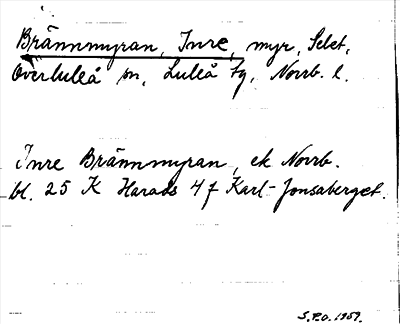 Brännmyran, Inre, myr, Selet,
Överluleå sn, Luleå tg, Norrb. l.
Inre Brännmyran, ek Norrb.
bl. 25 K Harads 4f Karl-Jonsaberget.
S.P.O. 1959.